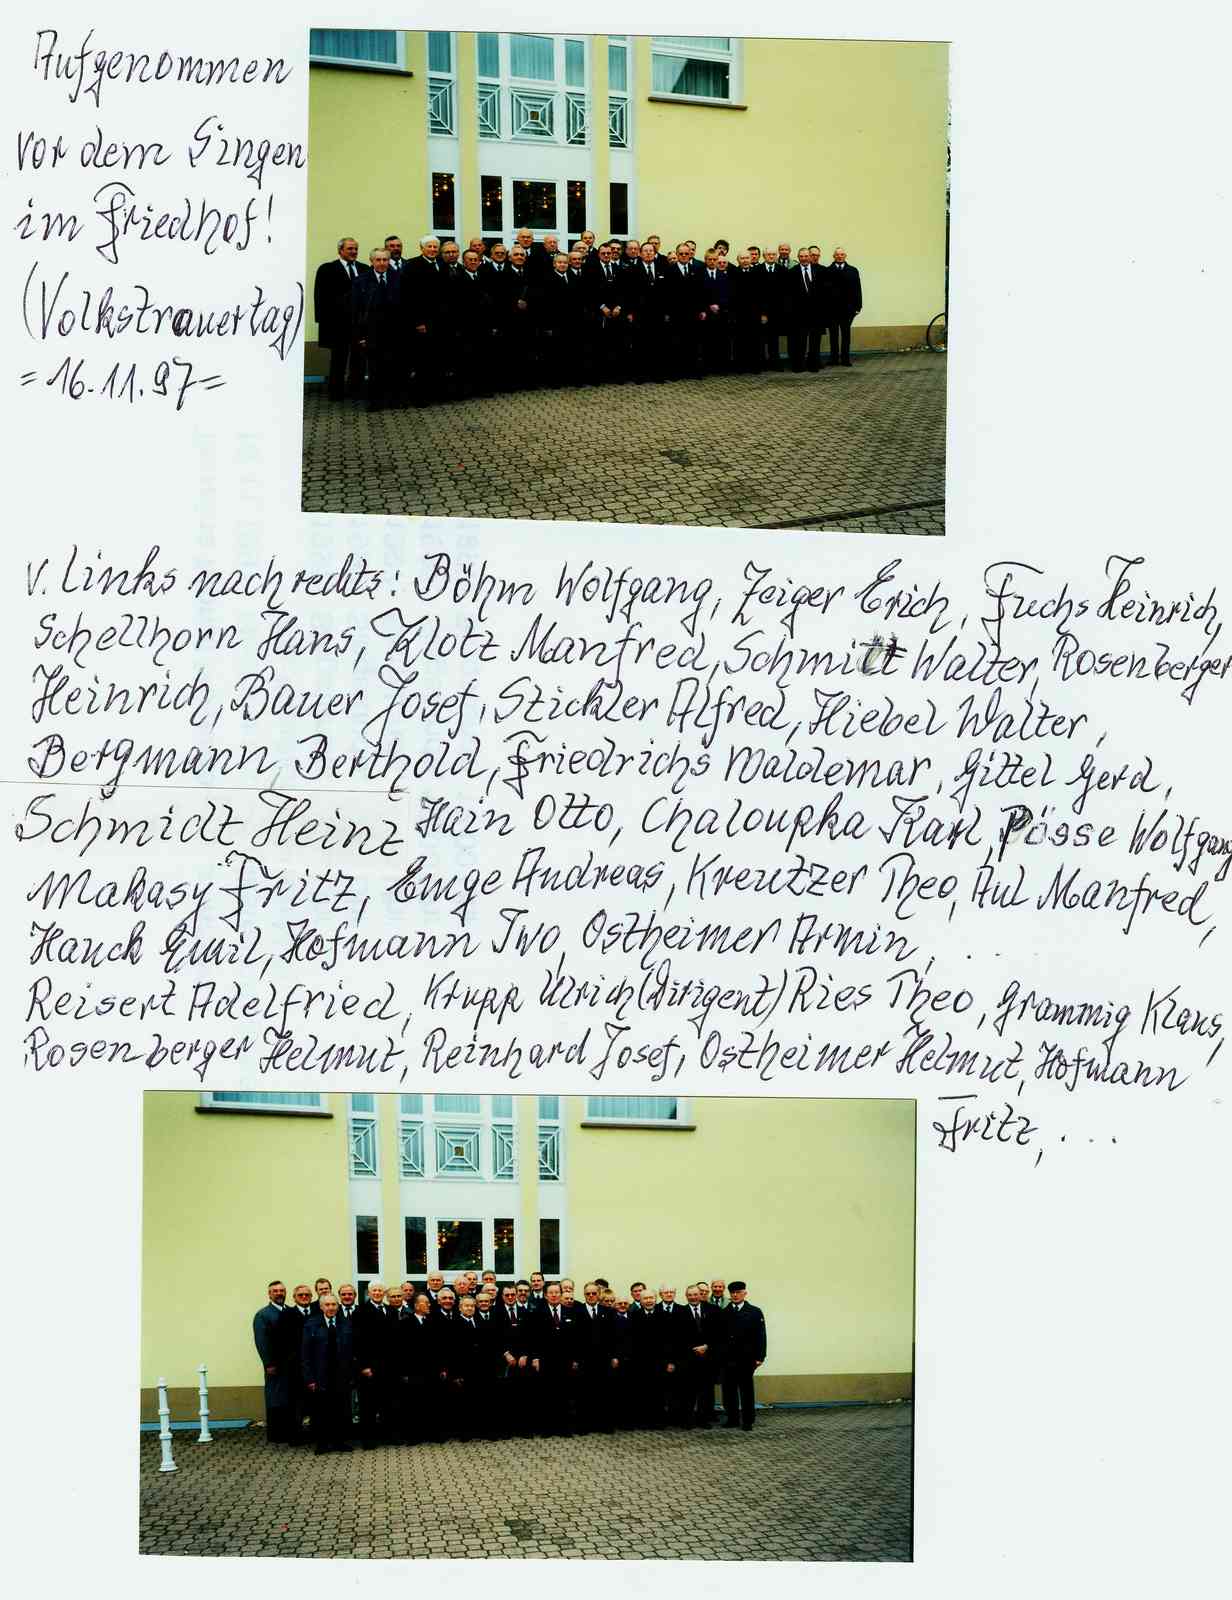 Aufgenommen
vor dem Singen
im Friedhof!
(Volkstrauertag)
=16.11.97=
v. Links nach rechts: Böhm Wolfgang, Zeiger Erich, Fuchs Heinrich,
Schellhorn Hans, Klotz Manfred, Schmitt Walter, Rosenberger
Heinrich, Bauer Josef, Stickler Alfred, Hiebel Walter,
Bergmann, Berthold, Friedrichs Waldemar, Gittel Gerd,
Schmidt Heinz Hain Otto, Chaloupka Karl, Pösse Wolfgang
Makasy Fritz, Emge Andreas, Kreutzer Theo, Aul Manfred,
Hauck Emil, Hofmann Ivo, Ostheimer Armin, ...
Reisert Adelfried, Krupp Ulrich (Dirigent) Ries Theo, Grammig Klaus,
Rosenberger Helmut, Reinhard Josef, Ostheimer Helmut, Hofmann
Fritz, ...